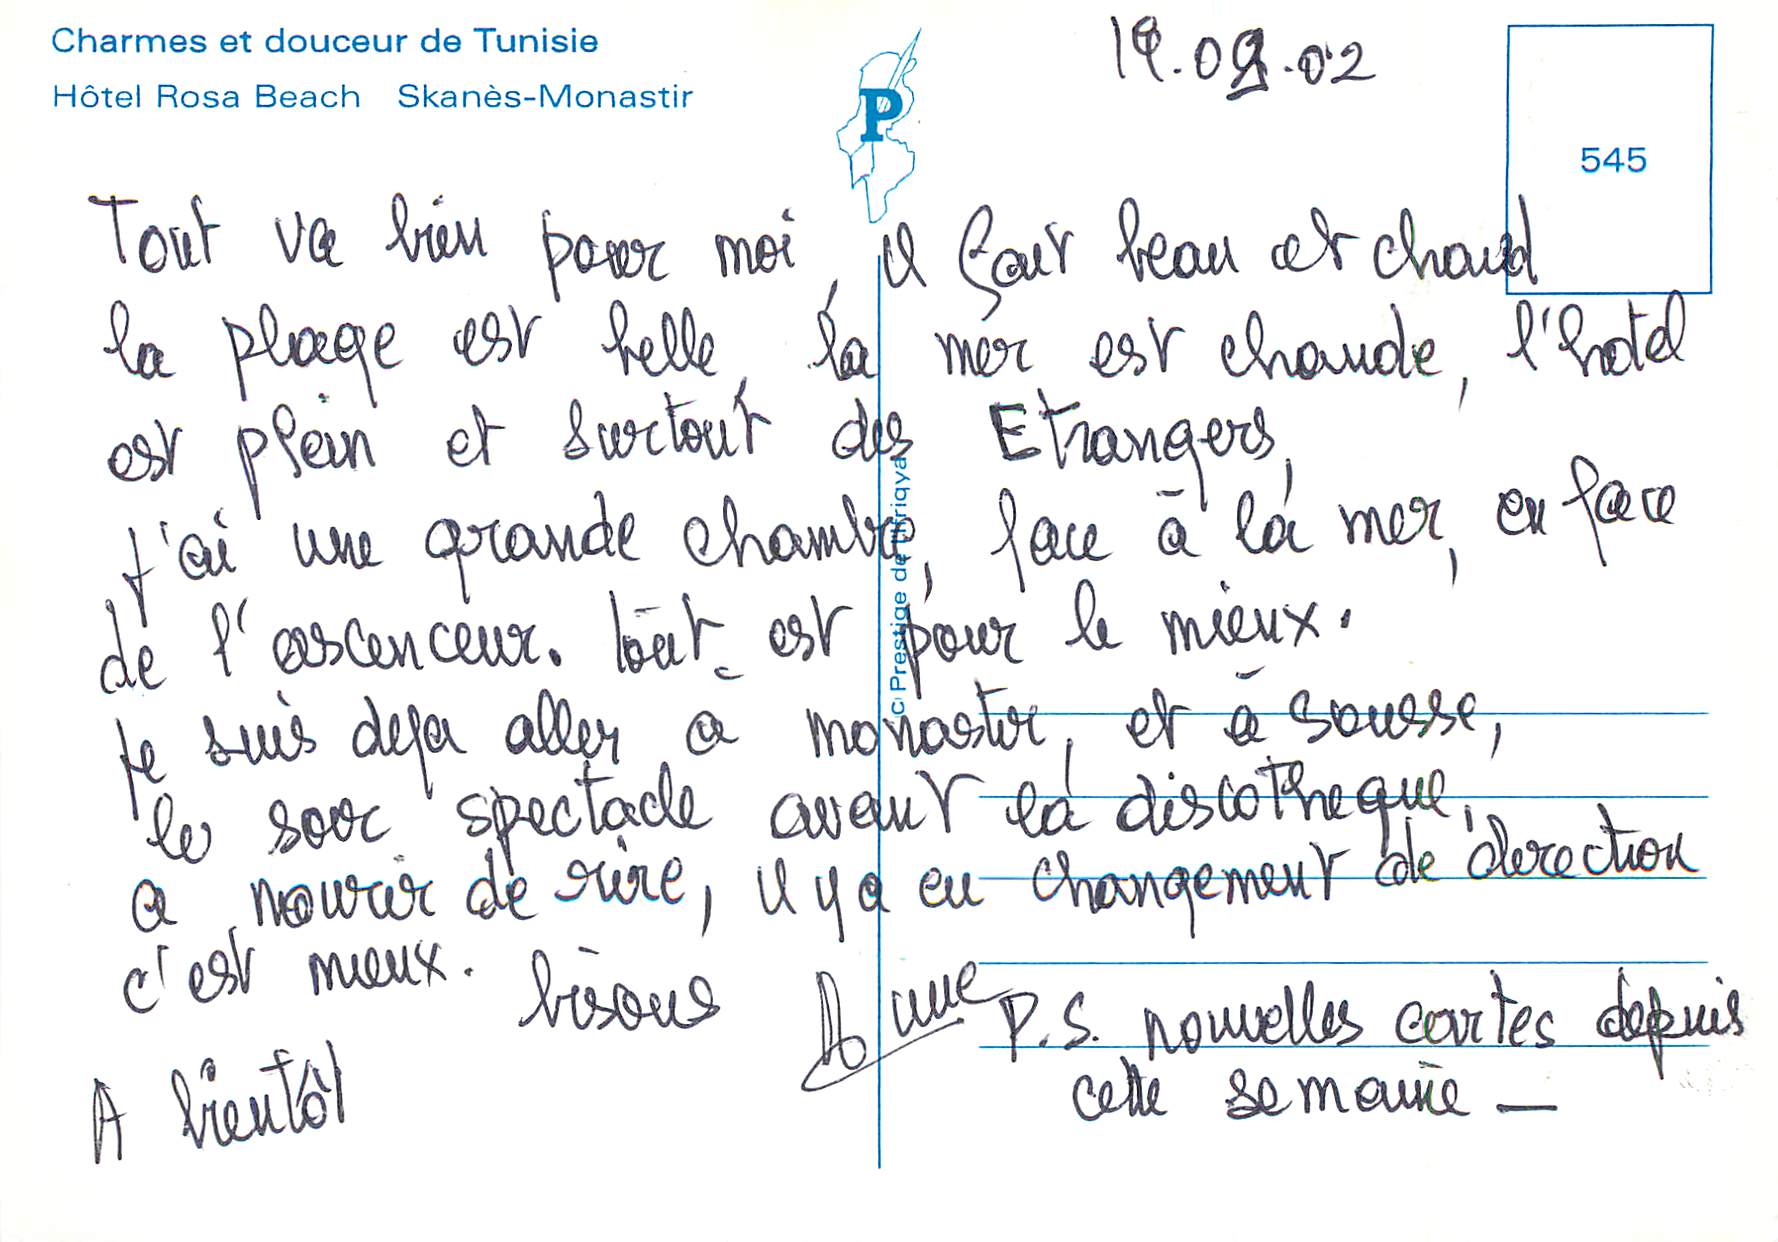 Charmes et douceur de Tunisie
Hôtel Rosa Beach Skanès-Monastir
P
19.09.02
545
Tout va bien pour moi, il fait beau et chaud
la plage est belle, la mer est chaude, l'hotel
est plein et surtout des Etrangers,
j'ai une grande chambre, face à la mer, en face
de l'ascenceur. tout est pour le mieux.
je suis deja aller a monastir, et à sousse,
le soir spectacle avant la discotheque,
a mourir de rire, il y a eu changement de direction
c'est mieux. bisous
A bientôt
P.S. nouvelles cartes depuis
cette semaine —
© Prestige de l'Ifriqya